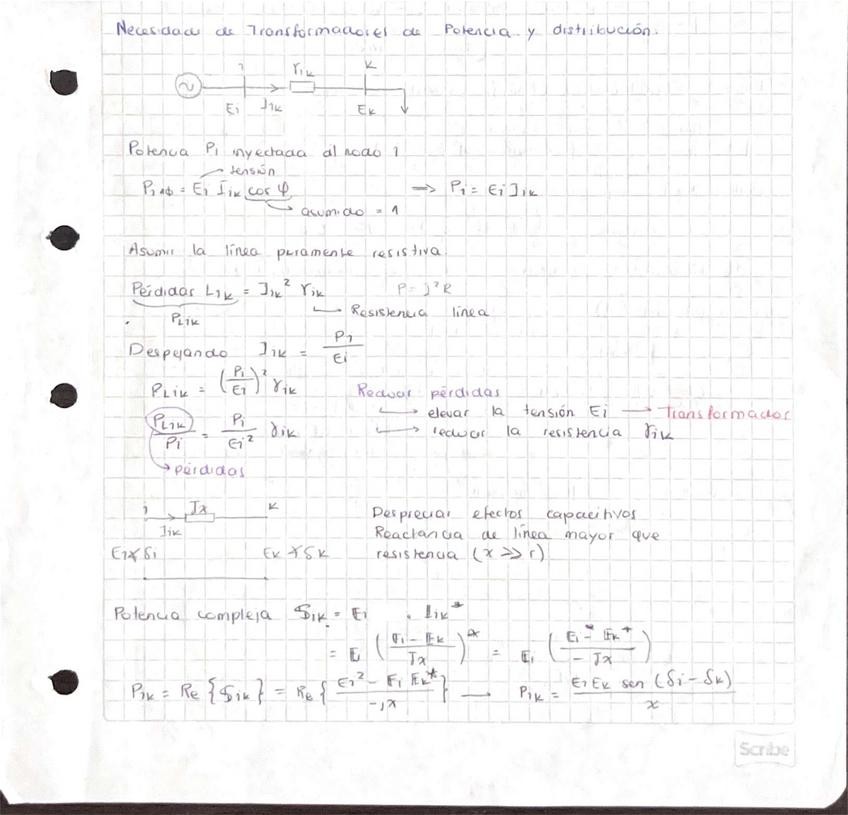 Necesidad de Transformadores de Potencia y distribución.
i rik k
Ei Iik Ek
Potencia Pi inyectada al nodo i
tensión
Pi1ϕ = Ei Iik cos φ → Pi = Ei Iik
asumido = 1
Asumir la línea puramente resistiva
Pérdidas Lik = Iik² rik P = I²R
PLik Resistencia línea
Despejando Iik = Pi / Ei
PLik = (Pi / Ei)² rik Reducir pérdidas
elevar la tensión Ei → Transformador
PLik / Pi = Pi / Ei² rik reducir la resistencia rik
→ pérdidas
i Jx k Despreciar efectos capacitivos
Iik Reactancia de línea mayor que
Ei∡δi Ek∡δk resistencia (x >> r)
Potencia compleja Sik = Ei . Iik*
= Ei ((Ei - Ek) / Jx)* = Ei ((Ei* - Ek*) / -Jx)
Pik = Re {Sik} = Re {(Ei² - Ei Ek*) / -Jx} → Pik = Ei Ek sen (δi - δk) / x
Scribe